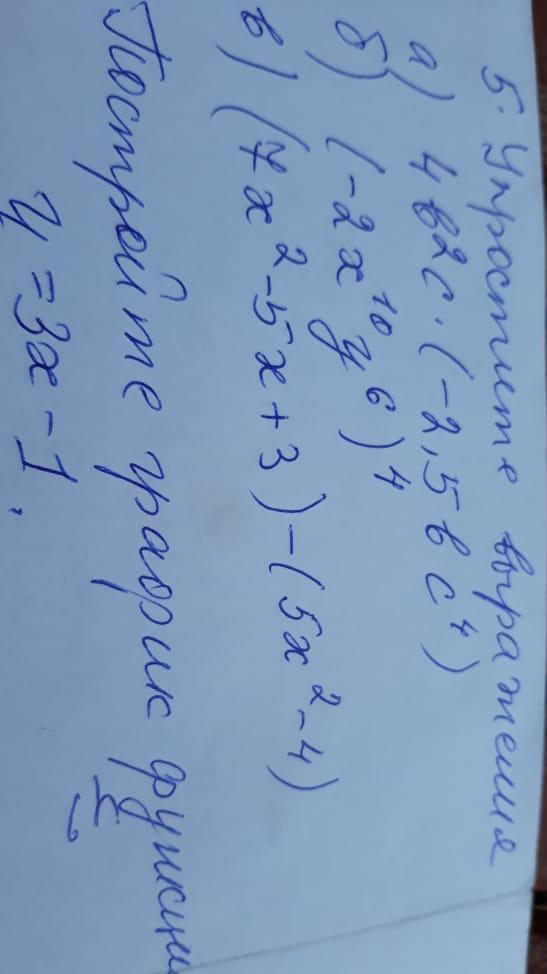 5. Упростите выражения
а) 4в2с·(-2,5вс⁴)
б) (-2x¹⁰y⁶)⁴
в) (7x²-5x+3)-(5x²-4)
Постройте график функции
y=3x-1.